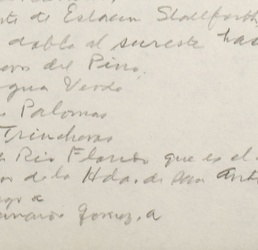 te de Estacion Stallforth
dobla al sureste has
del Pino,
gua Verde
Palomas
Trincheras
Rio Florido que es el
de la Hda. de San Anto
a
Gomez, a